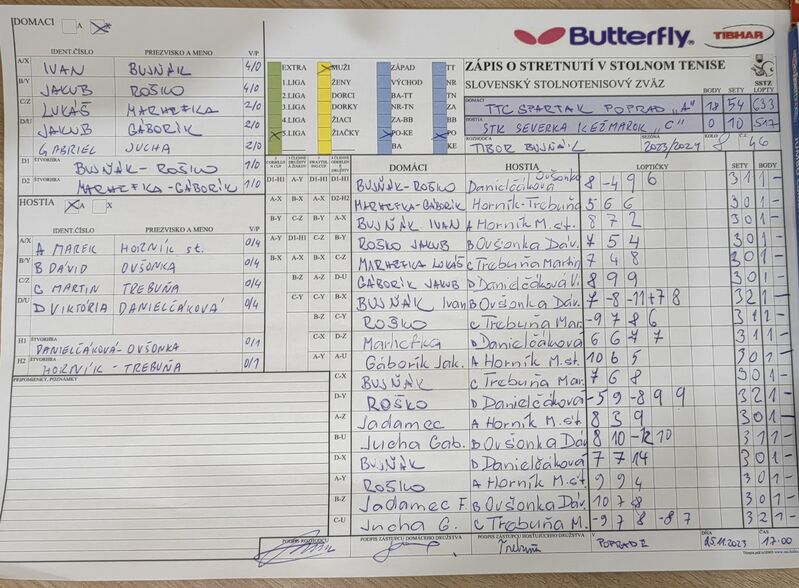 DOMACI A X
Butterfly
TIBHAR
IDENT.ČÍSLO PRIEZVISKO A MENO V/P
A/X IVAN BUJŇÁK 4/0
B/Y JAKUB ROŠKO 4/0
C/Z LUKÁŠ MARHEFKA 2/0
D/U JAKUB GÁBORÍK 2/0
GABRIEL JUCHA 2/0
D1 ŠTVORHRA BUJŇÁK - ROŠKO 1/0
D2 MARHEFKA - GÁBORÍK 1/0
EXTRA MUŽI ZÁPAD TT
1.LIGA ŽENY VÝCHOD NR
2.LIGA DORCI BA-TT TN
3.LIGA DORKY NR-TN ZA
4.LIGA ŽIACI ZA-BB BB
5.LIGA ŽIAČKY PO-KE PO
BA KE
ZÁPIS O STRETNUTÍ V STOLNOM TENISE
SLOVENSKÝ STOLNOTENISOVÝ ZVÄZ
SSTZ
BODY SETY LOPTY
DOMÁCI TTC SPARTAK POPRAD "A" 18 54 633
HOSTIA STK SEVERKA KEŽMAROK "C" 0 10 517
ROZHODCA TIBOR BUJŇÁK SEZÓNA 2023/2024 KOLO 8 Č.Z. 46
HOSTIA A X
IDENT.ČÍSLO PRIEZVISKO A MENO V/P
A/X A MAREK HORNÍK st. 0/4
B/Y B DÁVID OVŠONKA 0/4
C/Z C MARTIN TREBUŇA 0/4
D/U D VIKTÓRIA DANIELČÁKOVÁ 0/4
H1 ŠTVORHRA DANIELČÁKOVÁ - OVŠONKA 0/1
H2 HORNÍK - TREBUŇA 0/1
PRIPOMIENKY, POZNÁMKY
DOMÁCI HOSTIA LOPTIČKY SETY BODY
D1-H1 A-Y D1-H1 D1-H1 BUJŇÁK-ROŠKO Danielčáková Ovšonka 8 -4 9 6 3 1 1 -
A-X B-X A-X D2-H2 MARHEFKA-GÁBORÍK Horník-Trebuňa 5 6 6 3 0 1 -
B-Y C-Z B-Y A-X BUJŇÁK IVAN A Horník M. st. 8 7 2 3 0 1 -
A-Y D1-H1 C-Z B-Y ROŠKO JAKUB B Ovšonka Dáv. 7 5 4 3 0 1 -
B-X A-X B-X C-Z MARHEFKA LUKÁŠ C Trebuňa Martin 7 4 8 3 0 1 -
B-Z A-Z D-U GÁBORÍK JAKUB D Danielčáková Vi. 8 9 9 3 0 1 -
C-Y C-Y B-X BUJŇÁK Ivan B Ovšonka Dáv. 7 -8 -11 +7 8 3 2 1 -
B-Z C-Y ROŠKO C Trebuňa Mar. -9 7 8 6 3 1 1 -
C-X D-Z Marhefka D Danielčáková 6 6 7 7 3 1 1 -
A-Y A-U Gáborík Jak. A Horník M. st. 10 6 5 3 0 1 -
C-X BUJŇÁK C Trebuňa Mar. 7 6 8 3 0 1 -
D-Y ROŠKO D Danielčáková -5 9 -8 9 9 3 2 1 -
A-Z Jadamec A Horník M. st. 8 3 9 3 0 1 -
B-U Jucha Gab. B Ovšonka Dáv 8 10 -12 10 3 1 1 -
D-X BUJŇÁK D Danielčáková 7 7 14 3 0 1 -
A-Y ROŠKO A Horník M. st. 9 9 4 3 0 1 -
B-Z Jadamec F. B Ovšonka Dáv. 10 7 8 3 0 1 -
C-U Jucha G. C Trebuňa M. -9 7 8 -8 7 3 2 1 -
PODPIS ROZHODCU PODPIS ZÁSTUPCU DOMÁCEHO DRUŽSTVA PODPIS ZÁSTUPCU HOSŤUJÚCEHO DRUŽSTVA V DŇA ČAS
Trebuňa POPRADE 25.11.2023 17:00